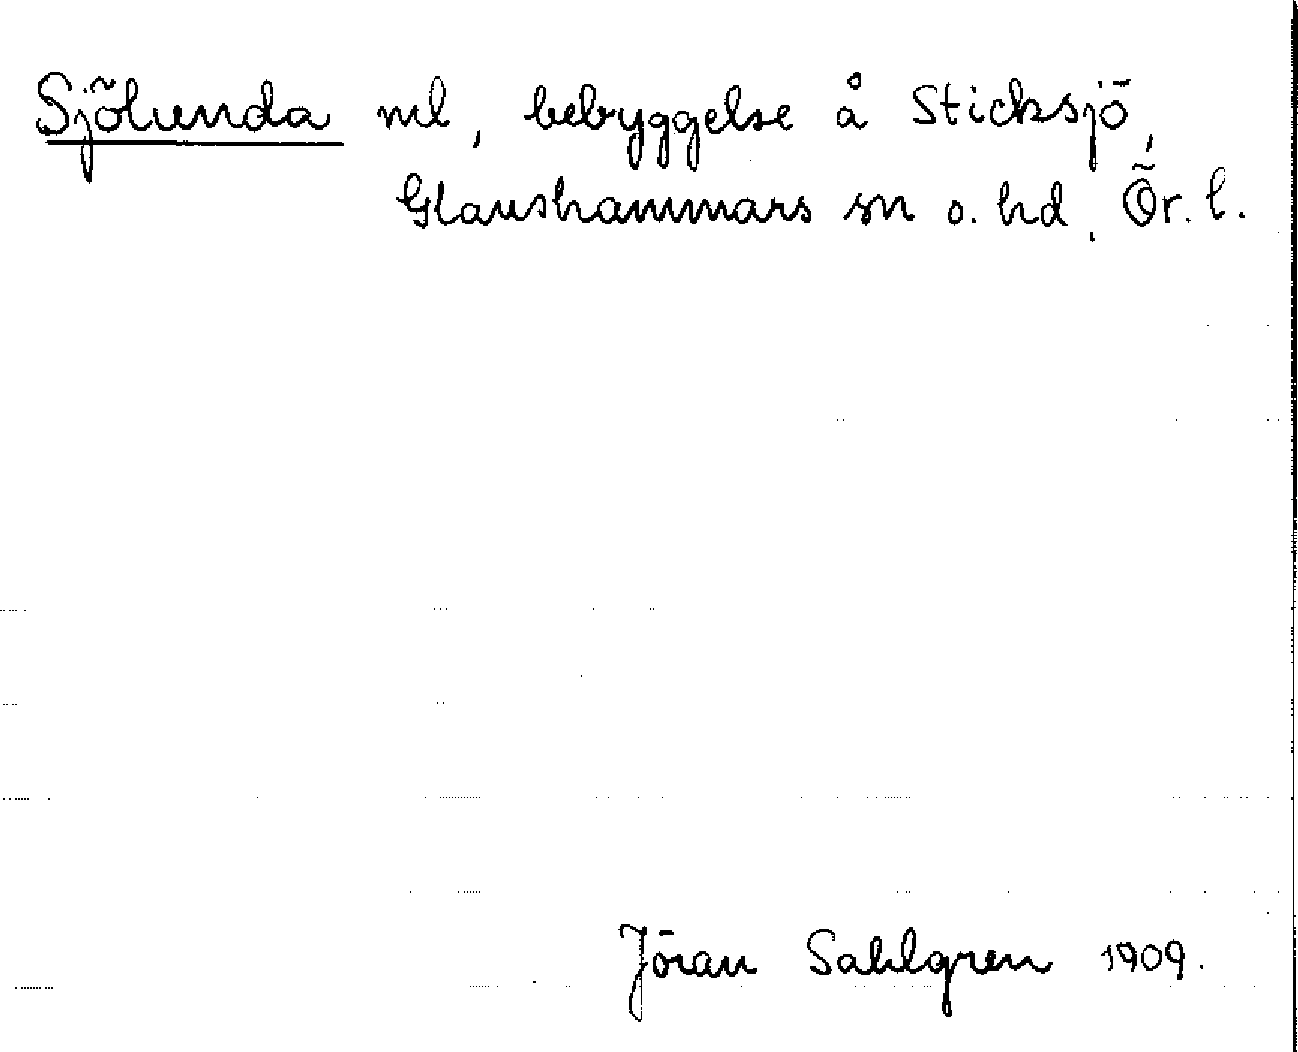 Sjölunda ml, bebyggelse å Sticksjö,
Glanshammars sn o. hd, Ör. l.
Jöran Sahlgren 1909.